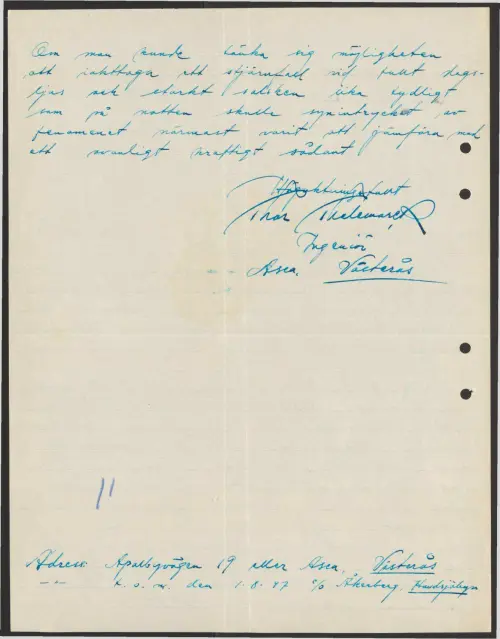 Om man kunde tänka sig möjligheten
att iakttaga ett stjärnfall vid fullt dags-
ljus och starkt solsken lika tydligt
som på natten skulle synintrycket av
fenomenet närmast varit att jämföra med
ett ovanligt kraftigt sådant
Högaktningsfullt
Thor Thelemarck
Ingeniör
Asea. Västerås
Adress: 19 eller Asea. Västerås
-"- t.o.m. den 1.8.47 c/o Åkerberg,